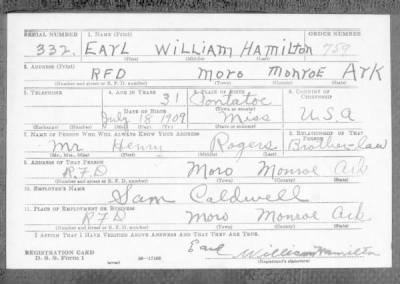 SERIAL NUMBER 1. NAME (Print) ORDER NUMBER
332. EARL WILLIAM HAMILTON 759
(First) (Middle) (Last)
2. ADDRESS (Print)
RFD MORO MONROE ARK
(Number and street or R. F. D. number) (Town) (County) (State)
3. TELEPHONE 4. AGE IN YEARS 5. PLACE OF BIRTH 6. COUNTRY OF CITIZENSHIP
31 Pontatoc
DATE OF BIRTH (Town or county)
July 18 1909 Miss U.S.A
(Exchange) (Number) (Mo.) (Day) (Yr.) (State or country)
7. NAME OF PERSON WHO WILL ALWAYS KNOW YOUR ADDRESS 8. RELATIONSHIP OF THAT PERSON
Mr. Henry Rogers Brother-law
(Mr., Mrs., Miss) (First) (Middle) (Last)
9. ADDRESS OF THAT PERSON
R.F.D Moro Monroe Ark
(Number and street or R. F. D. number) (Town) (County) (State)
10. EMPLOYER'S NAME
Sam Caldwell
11. PLACE OF EMPLOYMENT OR BUSINESS
RFD Moro Monroe Ark
(Number and street or R. F. D. number) (Town) (County) (State)
I AFFIRM THAT I HAVE VERIFIED ABOVE ANSWERS AND THAT THEY ARE TRUE.
REGISTRATION CARD Earl William Hamilton
D. S. S. Form 1 (over) 16—17105 (Registrant's signature)